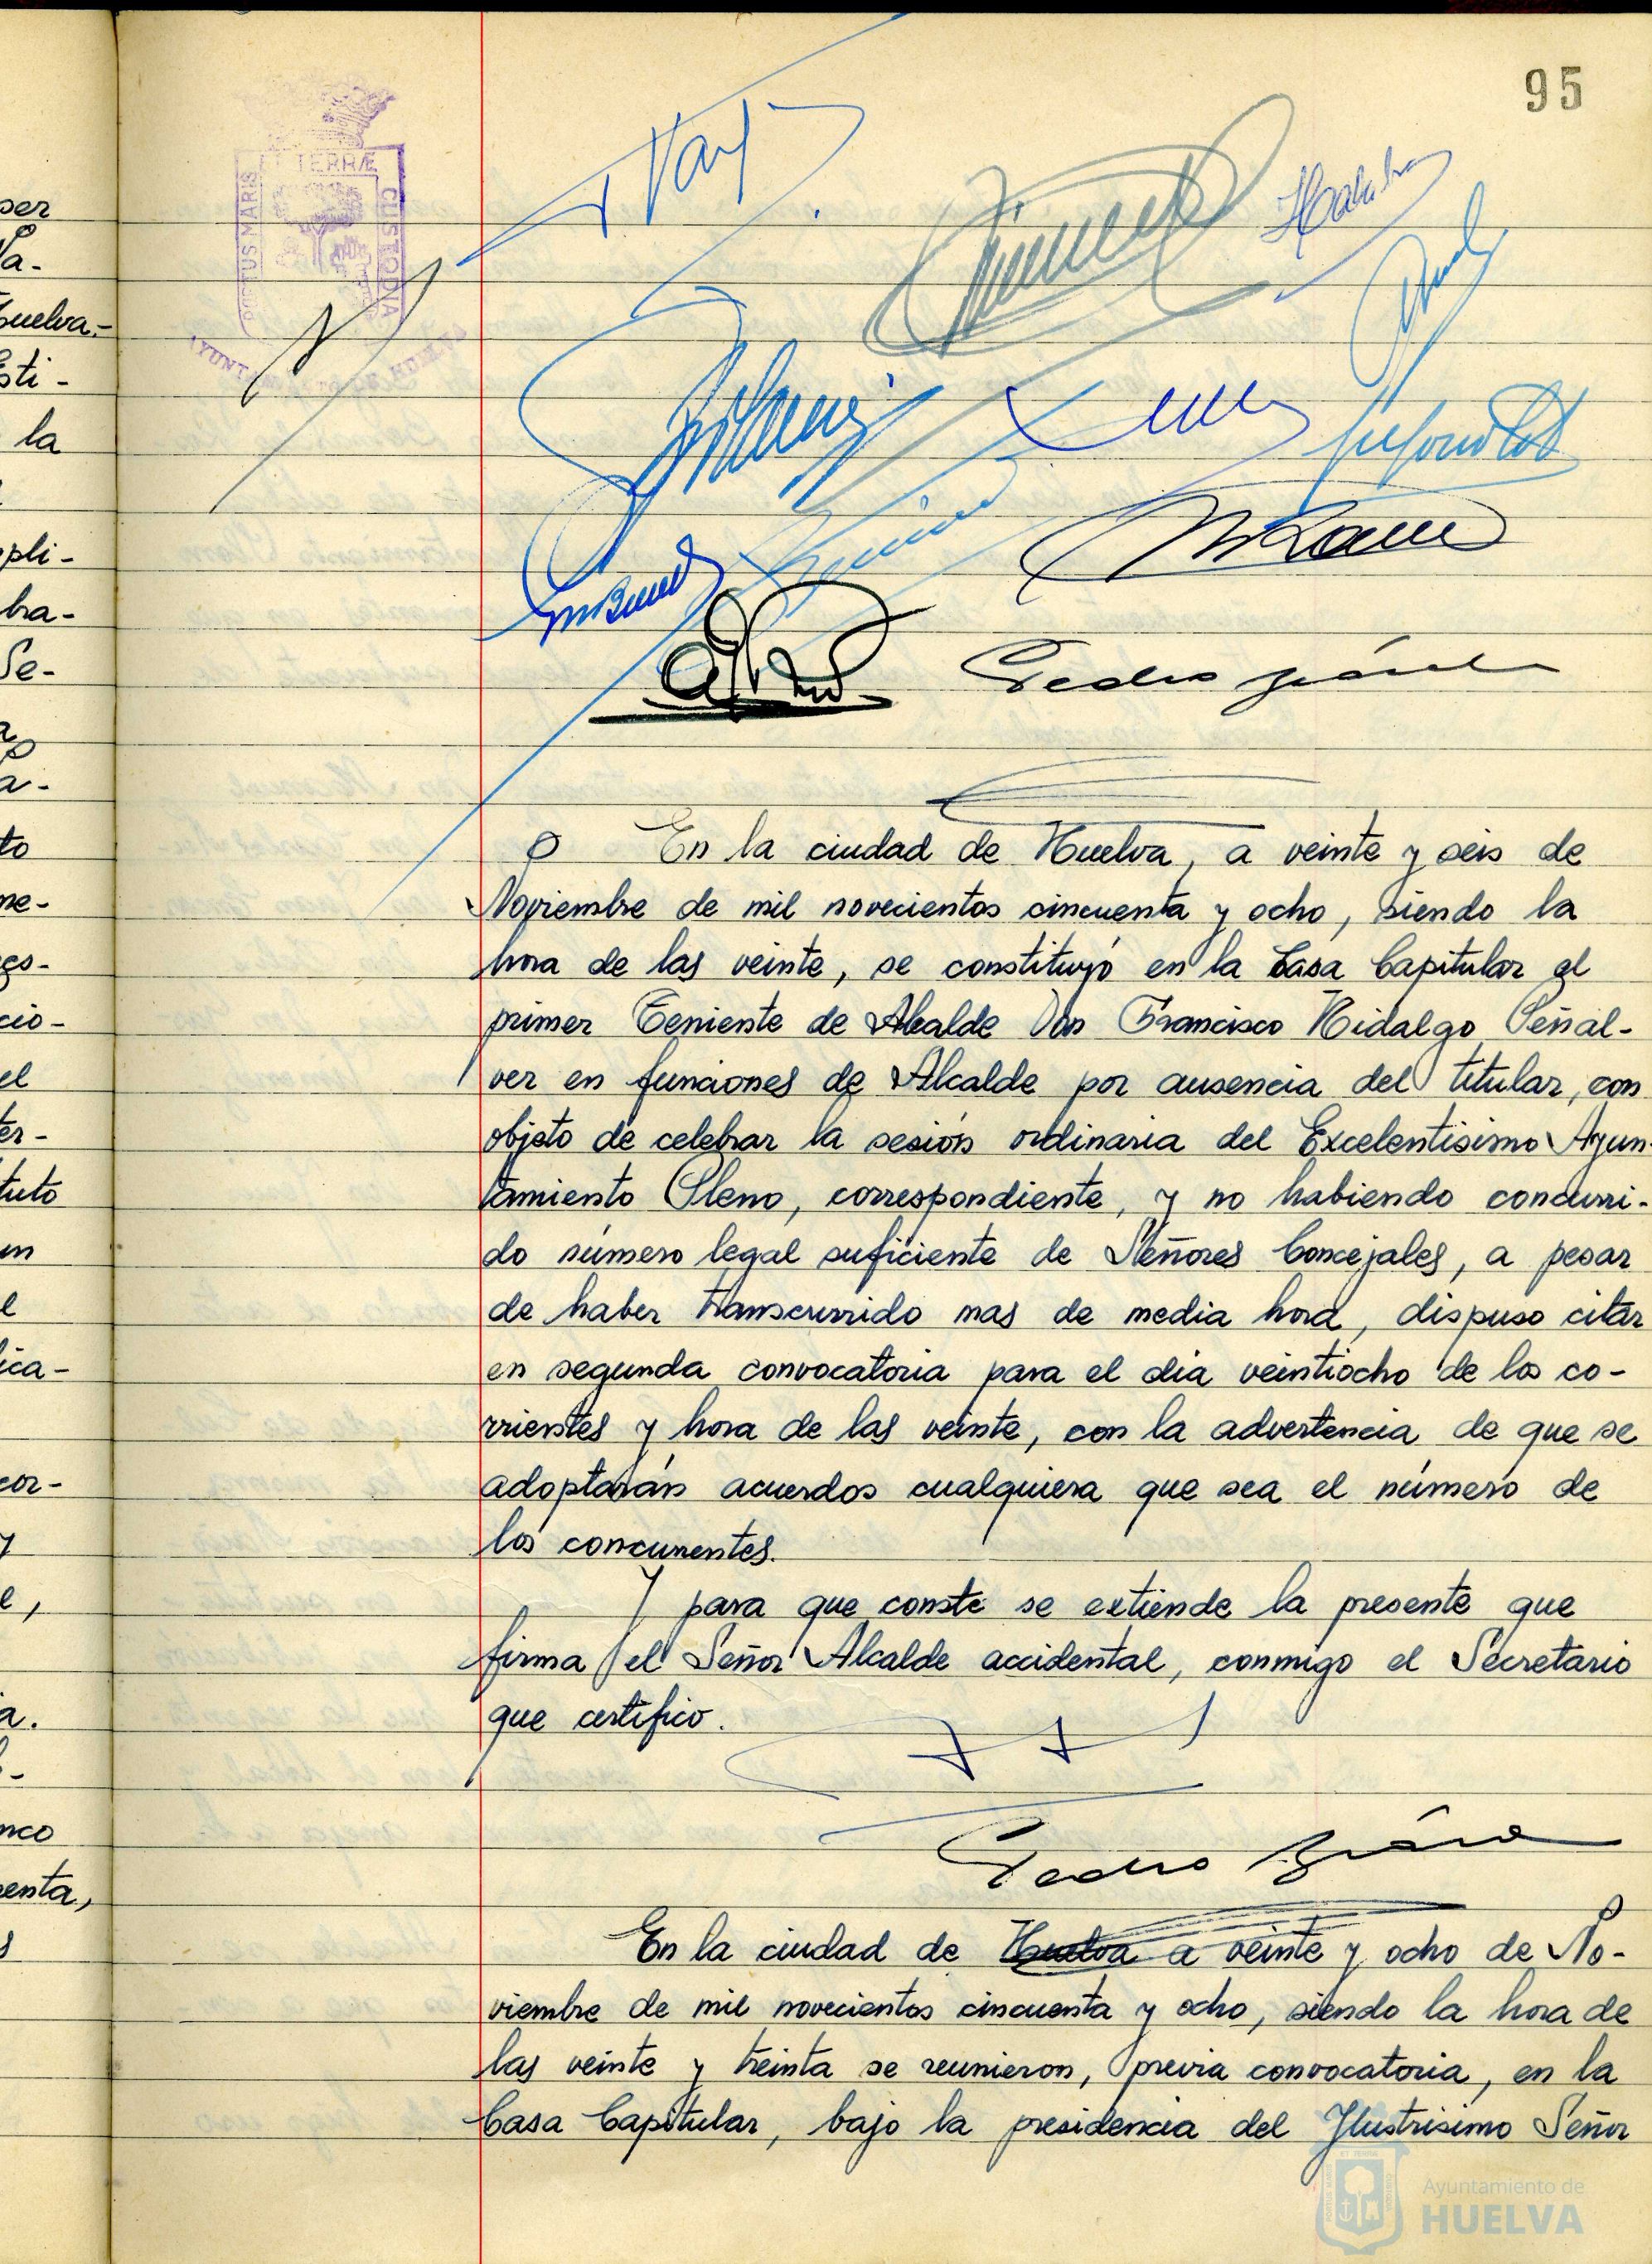 95
TERRÆ
PORTUS MARIS
CUSTODIA
ser
la
Pedro
En la ciudad de Huelva, a veinte y seis de
Noviembre de mil novecientos cincuenta y ocho, siendo la
hora de las veinte, se constituyó en la Casa Capitular el
primer Teniente de Alcalde Don Francisco Hidalgo Peñal-
ver en funciones de Alcalde por ausencia del titular, con
objeto de celebrar la sesión ordinaria del Excelentisimo Ayun-
tamiento Pleno, correspondiente, y no habiendo concurri-
do número legal suficiente de Señores Concejales, a pesar
de haber transcurrido mas de media hora, dispuso citar
en segunda convocatoria para el dia veintiocho de los co-
rrientes y hora de las veinte, con la advertencia de que se
adoptarán acuerdos cualquiera que sea el número de
los concurrentes.
Y para que conste se extiende la presente que
firma el Señor Alcalde accidental, conmigo el Secretario
que certifico.
Pedro
En la ciudad de Huelva a veinte y ocho de No-
viembre de mil novecientos cincuenta y ocho, siendo la hora de
las veinte y treinta se reunieron, previa convocatoria, en la
Casa Capitular, bajo la presidencia del Ilustrisimo Señor
Ayuntamiento de
HUELVA